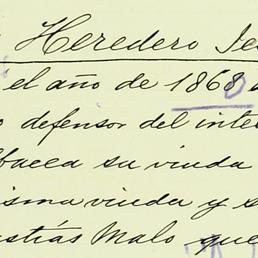 Heredero Je
el año de 1868
defensor del inte
bacea su viuda
isma viuda y s
ustias Malo que